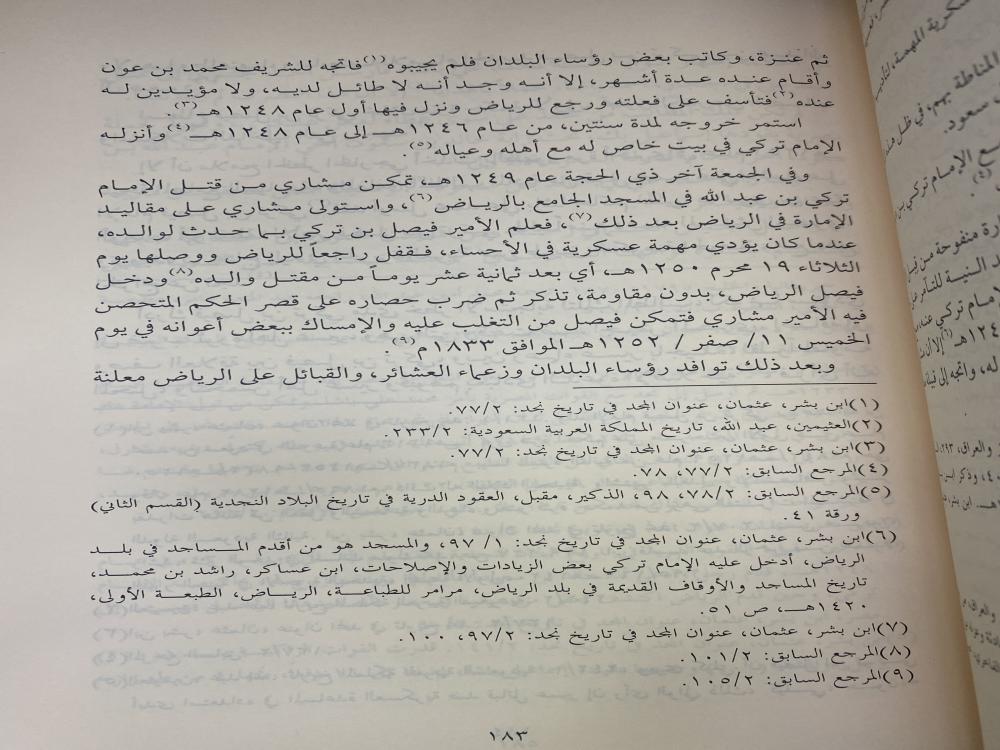 ثم عنزة، وكاتب بعض رؤساء البلدان فلم يجيبوه(١) فاتجه للشريف محمد بن عون
وأقام عنده عدة أشهر، إلا أنه وجد أنه لا طائل لديه، ولا مؤيدين له
عنده(٢) فتأسف على فعلته ورجع للرياض ونزل فيها أول عام ١٢٤٨هـ(٣).
استمر خروجه لمدة سنتين، من عام ١٢٤٦هـ إلى عام ١٢٤٨هـ(٤) وأنزله
الإمام تركي في بيت خاص له مع أهله وعياله(٥).
وفي الجمعة آخر ذي الحجة عام ١٢٤٩هـ، تمكن مشاري من قتل الإمام
تركي بن عبد الله في المسجد الجامع بالرياض(٦)، واستولى مشاري على مقاليد
الإمارة في الرياض بعد ذلك(٧)، فعلم الأمير فيصل بن تركي بما حدث لوالده،
عندما كان يؤدي مهمة عسكرية في الأحساء، فقفل راجعاً للرياض ووصلها يوم
الثلاثاء ١٩ محرم ١٢٥٠هـ، أي بعد ثمانية عشر يوماً من مقتل والده(٨) ودخل
فيصل الرياض، بدون مقاومة، تذكر ثم ضرب حصاره على قصر الحكم المتحصن
فيه الأمير مشاري فتمكن فيصل من التغلب عليه والإمساك ببعض أعوانه في يوم
الخميس ١١/ صفر / ١٢٥٢هـ الموافق ١٨٣٣م(٩).
وبعد ذلك توافد رؤساء البلدان وزعماء العشائر، والقبائل على الرياض معلنة
(١) ابن بشر، عثمان، عنوان المجد في تاريخ نجد: ٧٧/٢.
(٢) العثيمين، عبد الله، تاريخ المملكة العربية السعودية: ٢٣٣/٢.
(٣) ابن بشر، عثمان، عنوان المجد في تاريخ نجد: ٧٧/٢.
(٤) المرجع السابق: ٧٧/٢، ٧٨.
(٥) المرجع السابق: ٧٨/٢، ٩٨، الذكير، مقبل، العقود الدرية في تاريخ البلاد النجدية (القسم الثاني)
ورقة ٤١.
(٦) ابن بشر، عثمان، عنوان المجد في تاريخ نجد: ١/ ٩٧، والمسجد هو من أقدم المساجد في بلد
الرياض، أدخل عليه الإمام تركي بعض الزيادات والإصلاحات، ابن عساكر، راشد بن محمد،
تاريخ المساجد والأوقاف القديمة في بلد الرياض، مرامر للطباعة، الرياض، الطبعة الأولى،
١٤٢٠هـ، ص ٥١.
(٧) ابن بشر، عثمان، عنوان المجد في تاريخ نجد: ٩٧/٢، ١٠٠.
(٨) المرجع السابق: ١٠١/٢.
(٩) المرجع السابق: ١٠٥/٢.
١٨٣